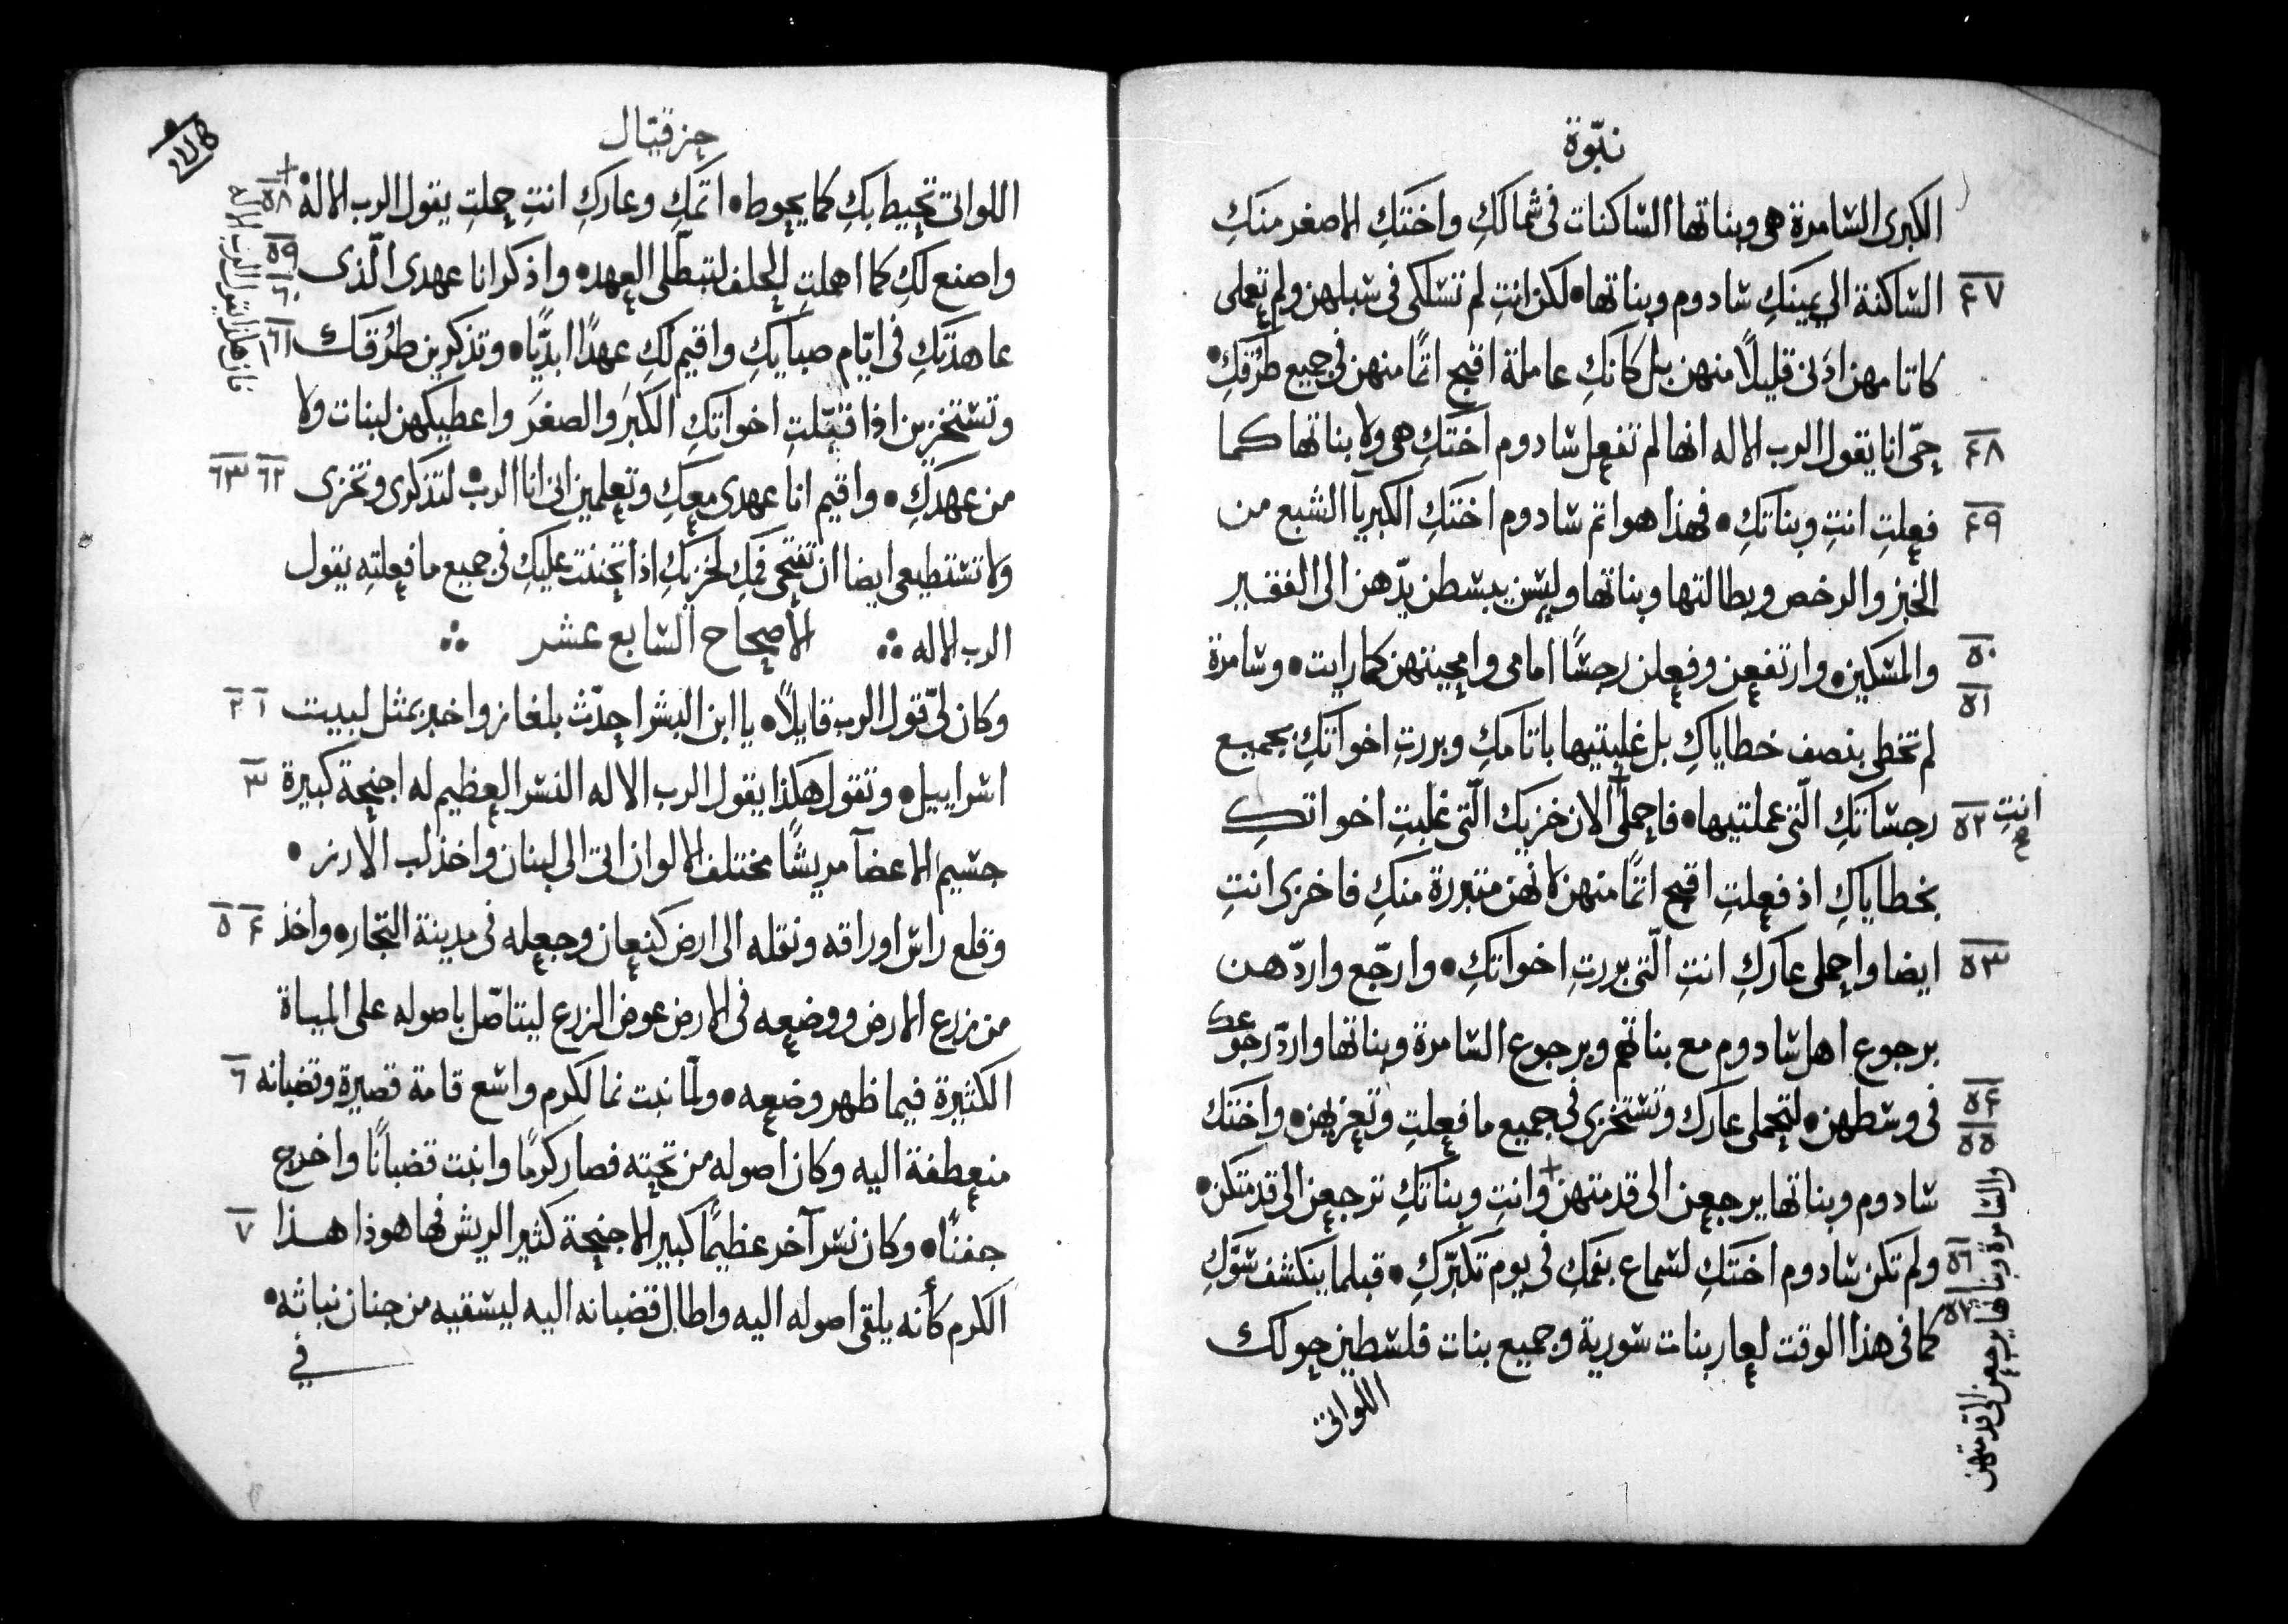 نبّوة
الكبرى السّامرة هى وبناتها السّاكنات فى شمالكِ واختكِ الاصغر منكِ
٤٧ السّاكنة الى يمينكِ سادوم وبناتها • لكن انتِ لم تسلكى فى سبلهن ولم تعملى
كاثامهن ادنى قليلاً منهن بل كانكِ عاملة اقبح اثمًا منهن فى جميع طُرُقكِ •
٤٨ حىّ انا يقول الرب الاله انها لم تفعل سادوم اختكِ هى ولا بناتها كما
٤٩ فعلتِ انتِ وبناتكِ • فهذا هو اثم سادوم اختكِ الكبريآ الشبع من
الخبز والرخص وبطالتها وبناتها وليس يبسطن يدّهن الى الفقير
٥٠ ٥١ والمسكين • وارتفعن وفعلن رجسًا امامى وامحيتهن كما رايت • وسامرة
لم تخطى بنصف خطاياكِ بل غلبتيها باثامكِ وبررتِ اخواتكِ بجميع
٥٢ رجساتكِ الّتى عملتيها • فاحملى + الان خزيك الّتى غلبتِ اخواتكِ
انتِ صح
بخطاياكِ اذ فعلتِ اقبح اثمًا منهن لانهن متبررة منكِ فاخزى انتِ
٥٣ ايضا واحملى عاركِ انتِ الّتى بررتِ اخواتكِ • وارجّع واردّهن
برجوع اهل سادوم مع بناتهم وبرجوع السّامرة وبناتها واردّ رجوعك
٥٤ ٥٥ فى وسطهن • لتحملى عارك وتستخزى فى جميع ما فعلتِ وتعزيهن • واختك
سادوم وبناتها يرجعن الى قدمتهن + وانتِ وبناتكِ ترجعن الى قدمتكن •
والسّامرة وبناتها يرجعن الى قدمتهن
٥٦ ٥٧ ولم تكن سادوم اختكِ لسماع بفمكِ فى يوم تكبّركِ • قبلما ينكشف سوّكِ
كما فى هذا الوقت لعار بنات سورية وجميع بنات فلسطين حولك
اللواتى
حزقيال
اللواتى تحيط بكِ كما يحوط • اثمكِ وعاركِ انتِ حملتِ يقول الرب الاله • ٥٨ +
واصنع لكِ كما اهملتِ الحلف لتبطّلى العهد • واذكر انا عهدى الّذى ٥٩ ٦٠
عاهدتكِ فى ايّام صبايكِ واقيم لكِ عهدًا ابديًّا • وتذكرين طُرُقك ٦١
وتستخزين اذا قبّلتِ اخواتكِ الكبَر والصغَر واعطيكهن لبنات ولا
من عهدكِ • واقيم انا عهدى معكِ وتعلمين انى انا الرب • لتذكرى وتخزى ٦٢ ٦٣
ولا تستطيعى ايضا ان تفتحى فمكِ لخزيكِ اذا تحننت عليكِ فى جميع ما فعلتِه يقول
الرب الاله ∴ الأصحاح السّابع عشر ∴
وكان لىّ قول الرب قايلاً • يا ابن البشر احدّث بلغاز واخبر بمثل لبيت ١ ٢
اسراييل • وتقول هكذا يقول الرب الاله النسر العظيم له اجنحة كبيرة ٣
جسيم الاعضآ مريشًا مختلف الالوان اتى الى لبنان واخذ لب الارز •
وقلع راس اوراقه ونقله الى ارض كنعان وجعله فى مدينة التجار • واخذ ٤ ٥
من زرع الارض ووضعه فى الارض عوض الزرع ليتاصّل باصوله على المياة
الكثيرة فيما ظهر وضعه • ولمّا نبت نما لكرم واسع قامة قصيرة وقضبانه ٦
منعطفة اليه وكان اصوله من تحته فصار كرمًا وانبت قضبانًا واخرج
جفنًا • وكان نسر آخر عظيمًا كبير الاجنحة كثير الريش فها هوذا هذا ٧
الكرم كأنه يلقى اصوله اليه واطال قضبانه اليه ليسقيه من جنان نباته •
فى